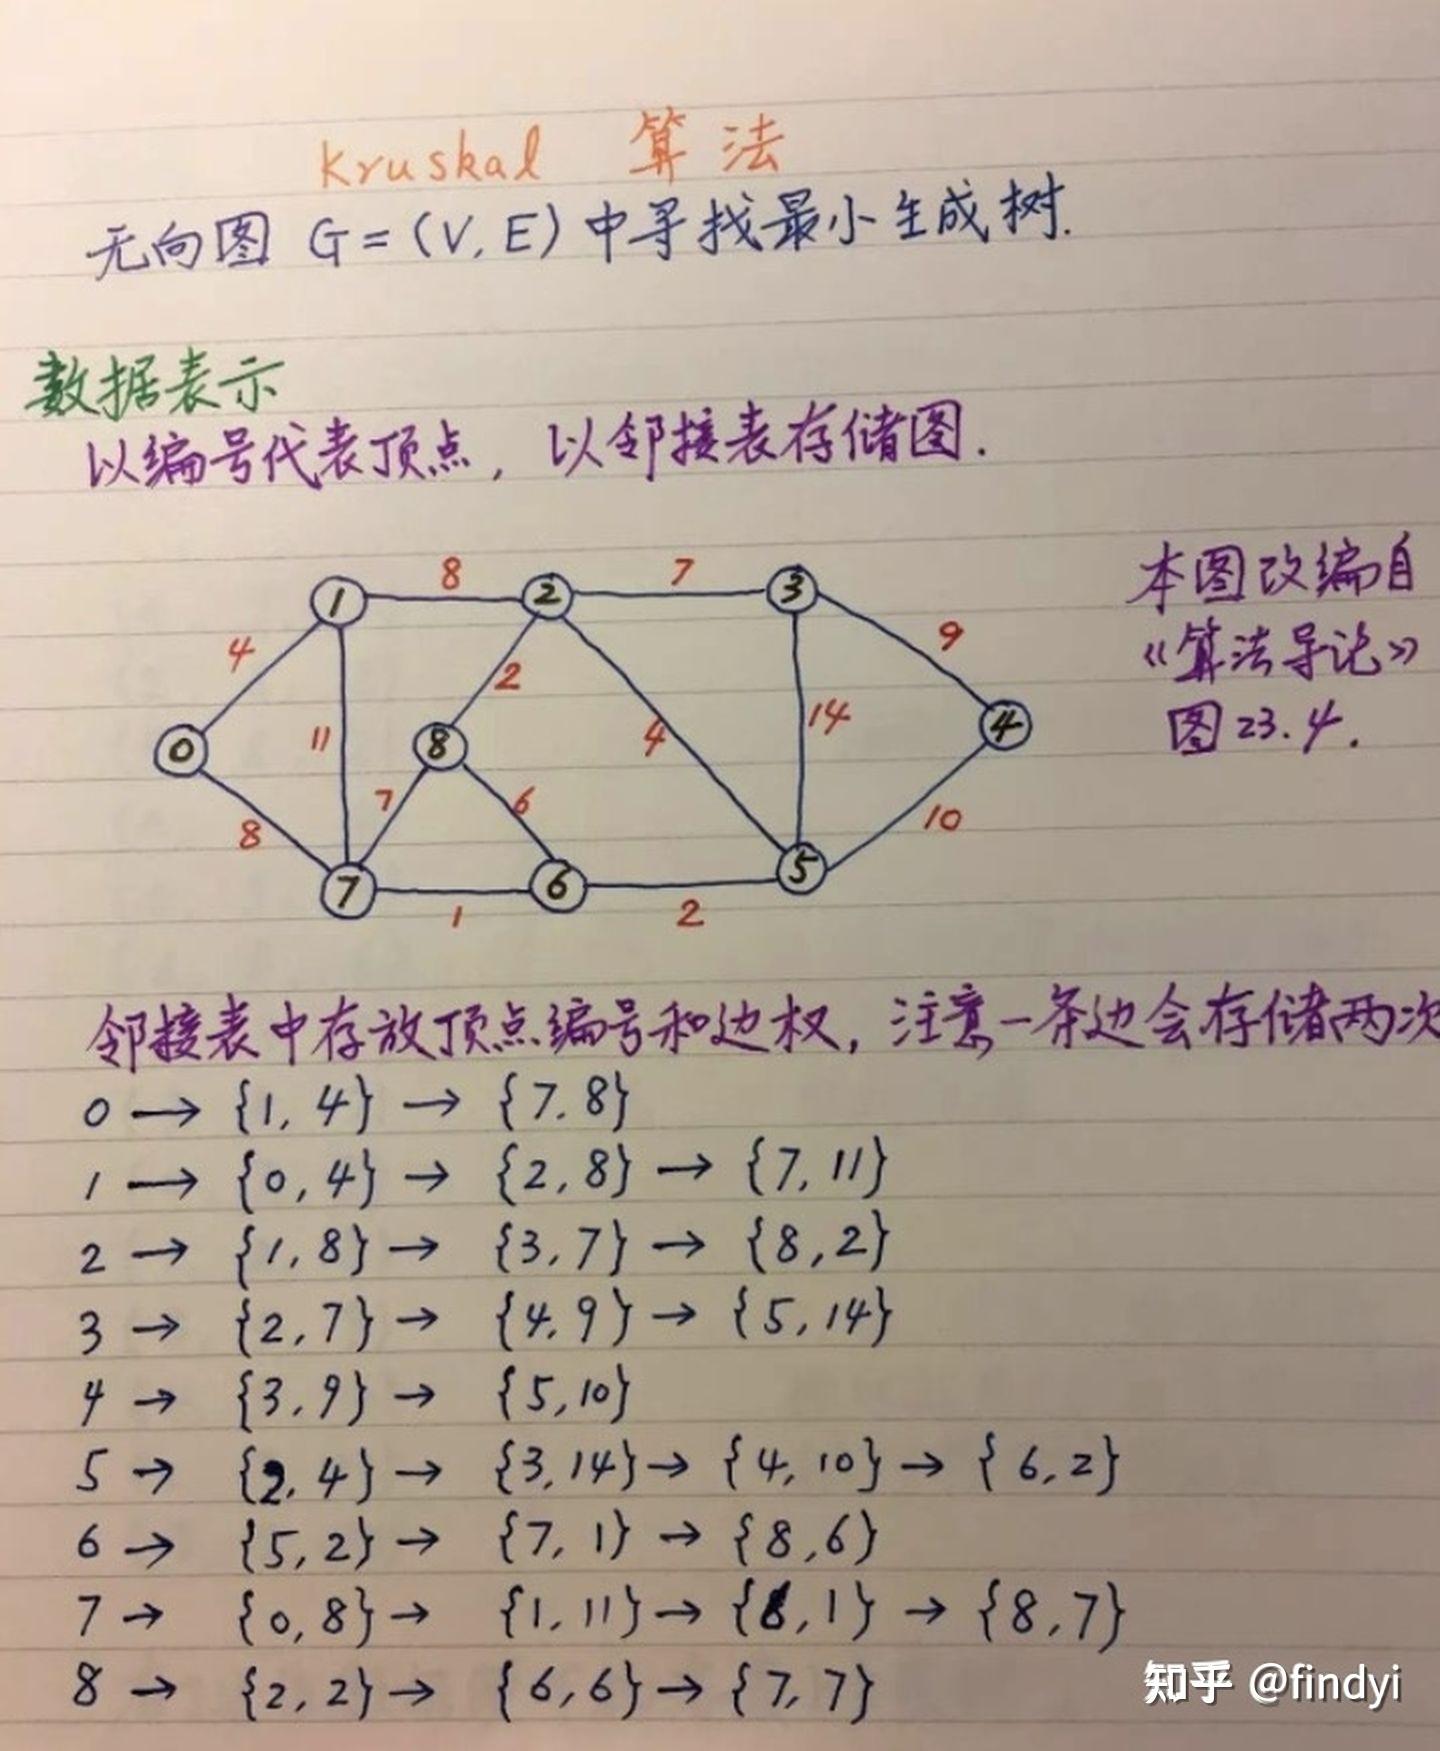 Kruskal 算法
无向图 G=(V,E)中寻找最小生成树.
数据表示
以编号代表顶点, 以邻接表存储图.
本图改编自
《算法导论》
图23.4.
8 7
1 2 3
4 2 9
0 11 8 4 14 4
8 7 6 10
7 6 5
1 2
邻接表中存放顶点编号和边权, 注意一条边会存储两次
0 → {1, 4} → {7. 8}
1 → {0, 4} → {2, 8} → {7, 11}
2 → {1, 8} → {3, 7} → {8, 2}
3 → {2, 7} → {4, 9} → {5, 14}
4 → {3, 9} → {5, 10}
5 → {2, 4} → {3, 14} → {4, 10} → {6, 2}
6 → {5, 2} → {7, 1} → {8, 6}
7 → {0, 8} → {1, 11} → {6, 1} → {8, 7}
8 → {2, 2} → {6, 6} → {7, 7}
知乎 @findyi